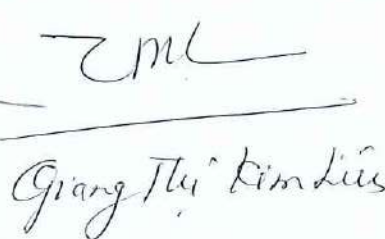 Giang Thị Kim Liên